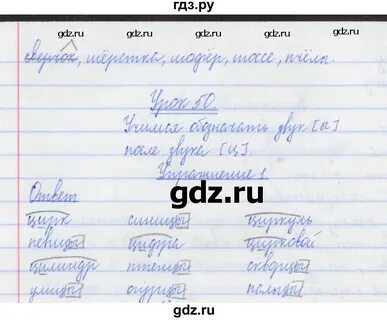 гдз.ру
gdz.ru gdz.ru gdz.ru
сверчок, шёрстка, шофёр, шоссе, пчёлы.
Урок 50.
Учимся обозначать звук [ы]
после звука [ц]
Упражнение 1
gdz.ru
Ответ
цирк синицы циркуль
певицы цифра цирковой
цилиндр птенцы скворцы
улицы огурцы пальцы
gdz.ru gdz.ru gdz.ru